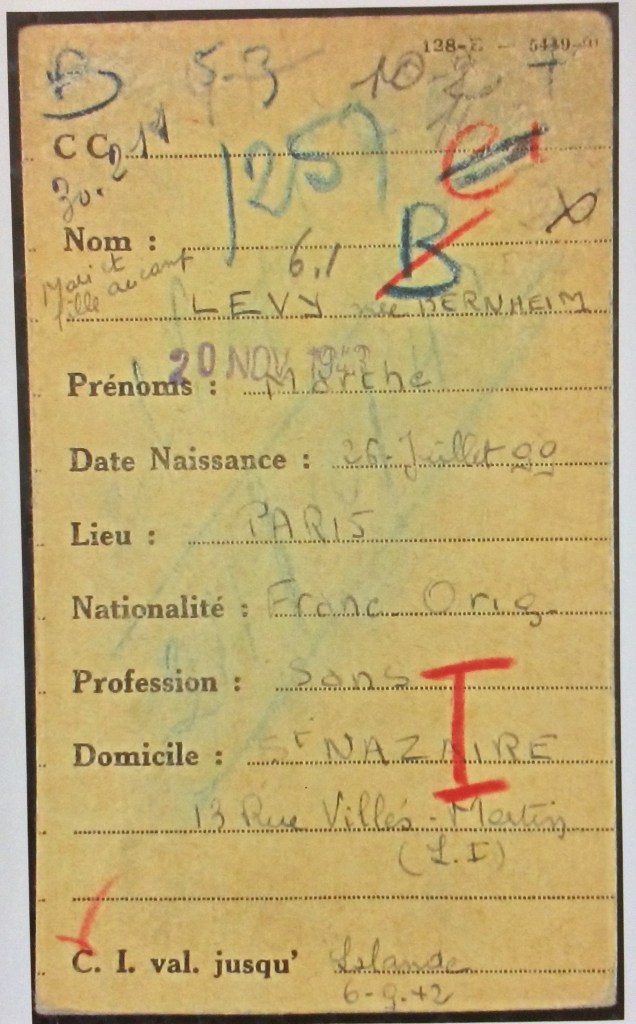 128-E — 5449-
B 5-3 10-2
C C. 211
30.
1257
Nom :
6.1
B
Mari et
fille au camp
LEVY née BERNHEIM
20 NOV 194
Prénoms : Marthe
Date Naissance : 26-Juillet 99
Lieu : PARIS
Nationalité : Franc- Orig-
Profession : Sans
I
Domicile : St NAZAIRE
13 Rue Villès-Martin
(L.I)
C. I. val. jusqu'
6-9-42